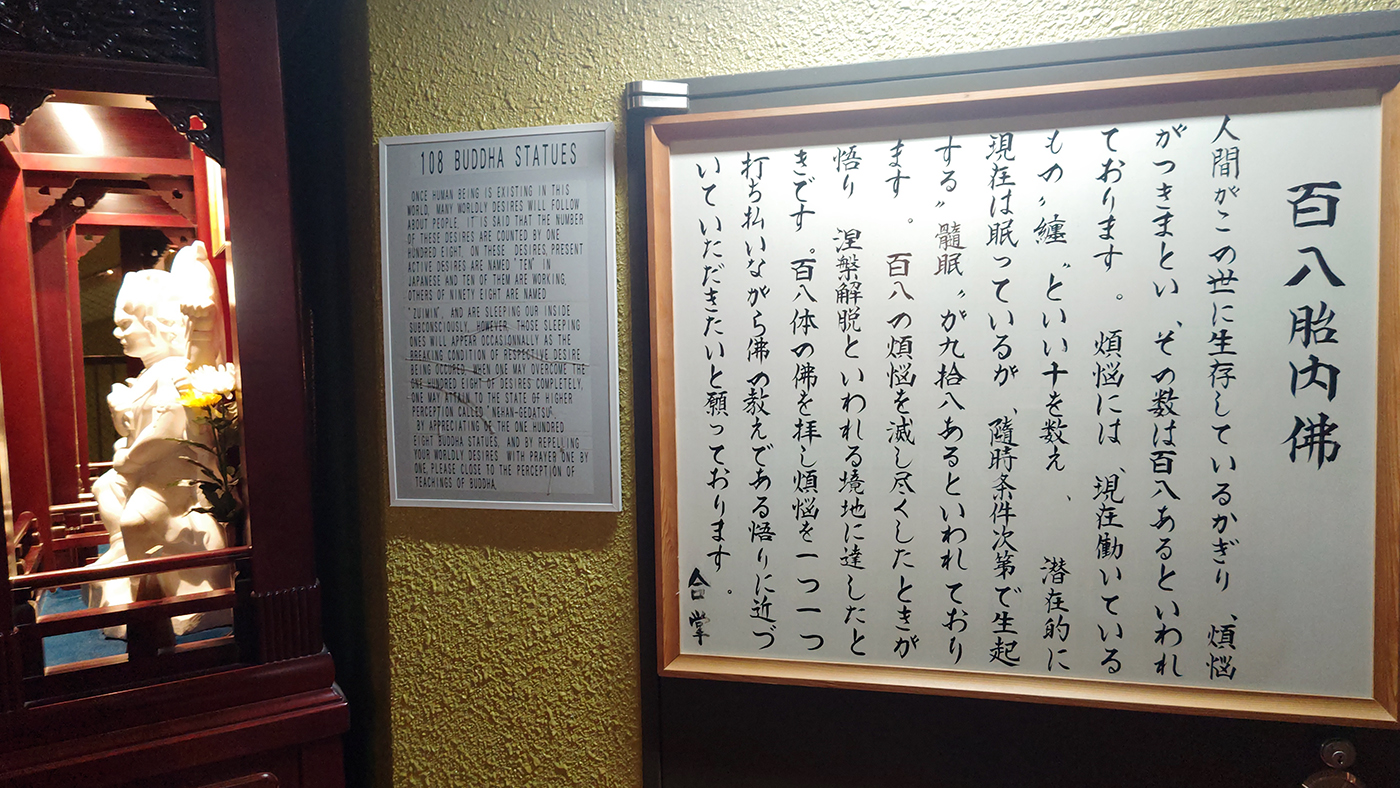 108 BUDDHA STATUES
ONCE HUMAN BEING IS EXISTING IN THIS
WORLD, MANY WORLDLY DESIRES WILL FOLLOW
ABOUT PEOPLE. IT IS SAID THAT THE NUMBER
OF THESE DESIRES ARE COUNTED BY ONE
HUNDRED EIGHT. ON THESE DESIRES, PRESENT
ACTIVE DESIRES ARE NAMED "TEN" IN
JAPANESE AND TEN OF THEM ARE WORKING,
OTHERS OF NINETY EIGHT ARE NAMED
"ZUIMIN", AND ARE SLEEPING OUR INSIDE
SUBCONSCIOUSLY, HOWEVER, THOSE SLEEPING
ONES WILL APPEAR OCCASIONNALLY AS THE
BREAKING CONDITION OF RESPECTIVE DESIRE
BEING OCCURED. WHEN ONE MAY OVERCOME THE
ONE HUNDRED EIGHT OF DESIRES COMPLETELY,
ONE MAY ATTAIN TO THE STATE OF HIGHER
PERCEPTION CALLED "NEHAN-GEDATSU".
BY APPRECIATING OF THE ONE HUNDRED
EIGHT BUDDHA STATUES, AND BY REPELLING
YOUR WORLDLY DESIRES WITH PRAYER ONE BY
ONE, PLEASE CLOSE TO THE PERCEPTION OF
TEACHINGS OF BUDDHA.
百八胎内佛
人間がこの世に生存しているかぎり、煩悩
がつきまとい、その数は百八あるといわれ
ております。煩悩には、現在働いている
もの〝纏〟といい十を数え、潜在的に
現在は眠っているが、隨時条件次第で生起
する〝髓眠〟が九拾八あるといわれており
ます。百八の煩悩を滅し尽くしたときが
悟り 涅槃解脱といわれる境地に達したと
きです。百八体の佛を拝し煩悩を一つ一つ
打ち払いながら佛の教えである悟りに近づ
いていただきたいと願っております。
合掌